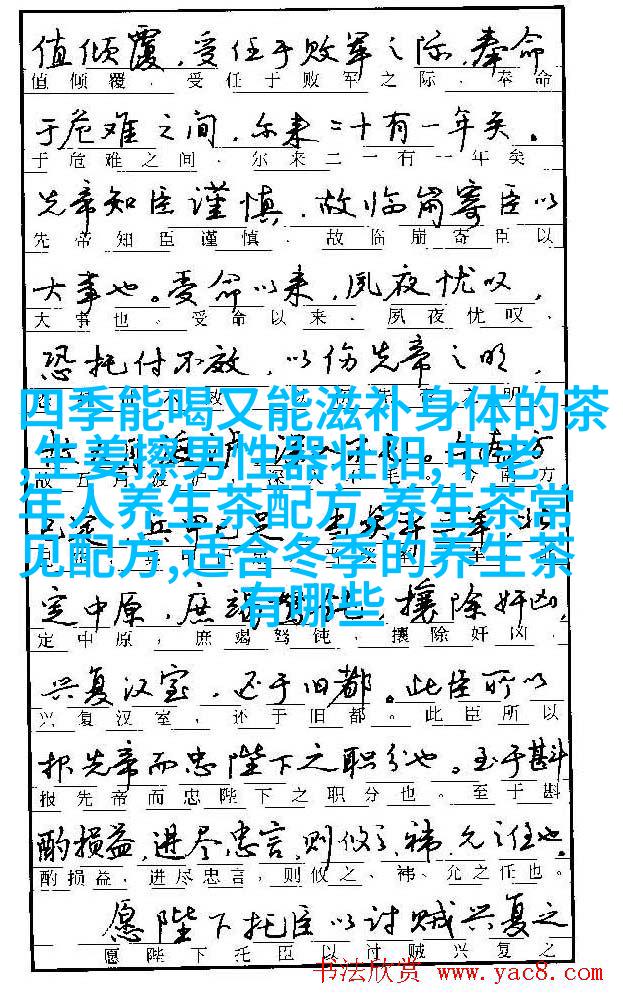 值倾覆，受任于败军之际，奉命
值倾覆．受任于败军之际．奉命
于危难之间，尔来二十有一年矣。
于危难之间．尔来二一有一年矣
先帝知臣谨慎，故临崩寄臣以
先帝知臣谨慎．故临崩寄臣以
大事也。受命以来，夙夜忧叹，
大事也．受命以来．夙夜忧叹．
恐托付不效，以伤先帝之明，
四季能喝又能滋补身体的茶
,生姜擦男性器壮阳,中老
年人养生茶配方,养生茶常
见配方,适合冬季的养生茶
有哪些
定中原，庶竭驽钝，攘除奸凶，
定中原，庶竭驽钝，攘除奸凶，
兴复汉室，还于旧都。此臣所以
兴复汉室，还于旧都。此臣所以
报先帝而忠陛下之职分也。至于斟
报先帝而忠陛下之职分也。至于斟
酌损益，进尽忠言，则攸之、祎、允之任也。
酌损益．进尽忠言，则攸之、祎、允之任也。
愿陛下托臣以讨贼兴复之
愿陛下托臣以讨贼兴复之
书法欣赏 www.yac8.com